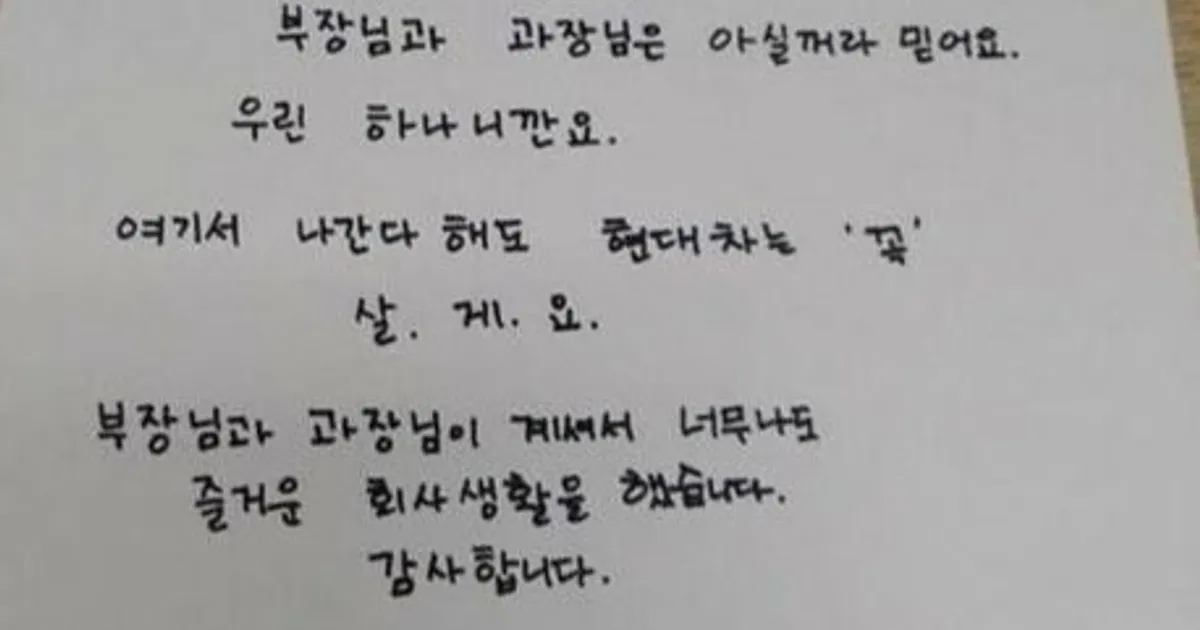 부장님과 과장님은 아실꺼라 믿어요.
우린 하나니깐요.
여기서 나간다 해도 현대차는 '꼭'
살. 게. 요.
부장님과 과장님이 계셔서 너무나도
즐거운 회사생활을 했습니다.
감사합니다.